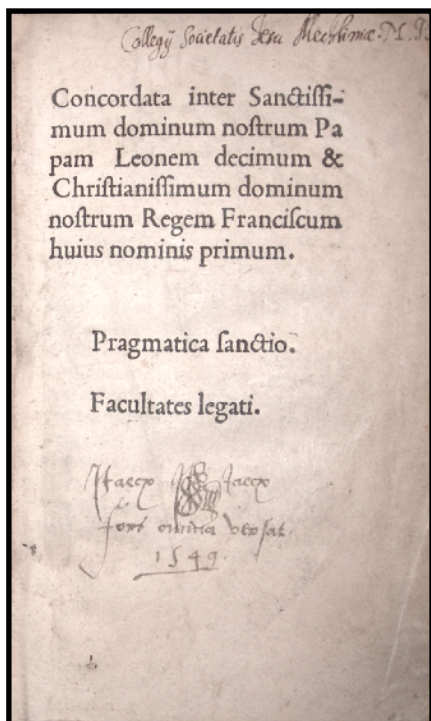 Collegij Societatis Jesu Mechliniæ. M. J.
Concordata inter Sanctiſſi-
mum dominum noſtrum Pa
pam Leonem decimum &
Chriſtianiſſimum dominum
noſtrum Regem Franciſcum
huius nominis primum.
Pragmatica ſanctio.
Facultates legati.
ſors omnia verſat.
1549.